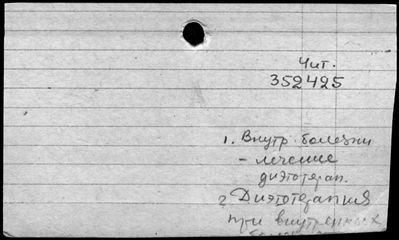 Чит.
352425
1. Внутр. болезни
- лечение
диэтотерап.
2. Диэтотерапия
при внутренних